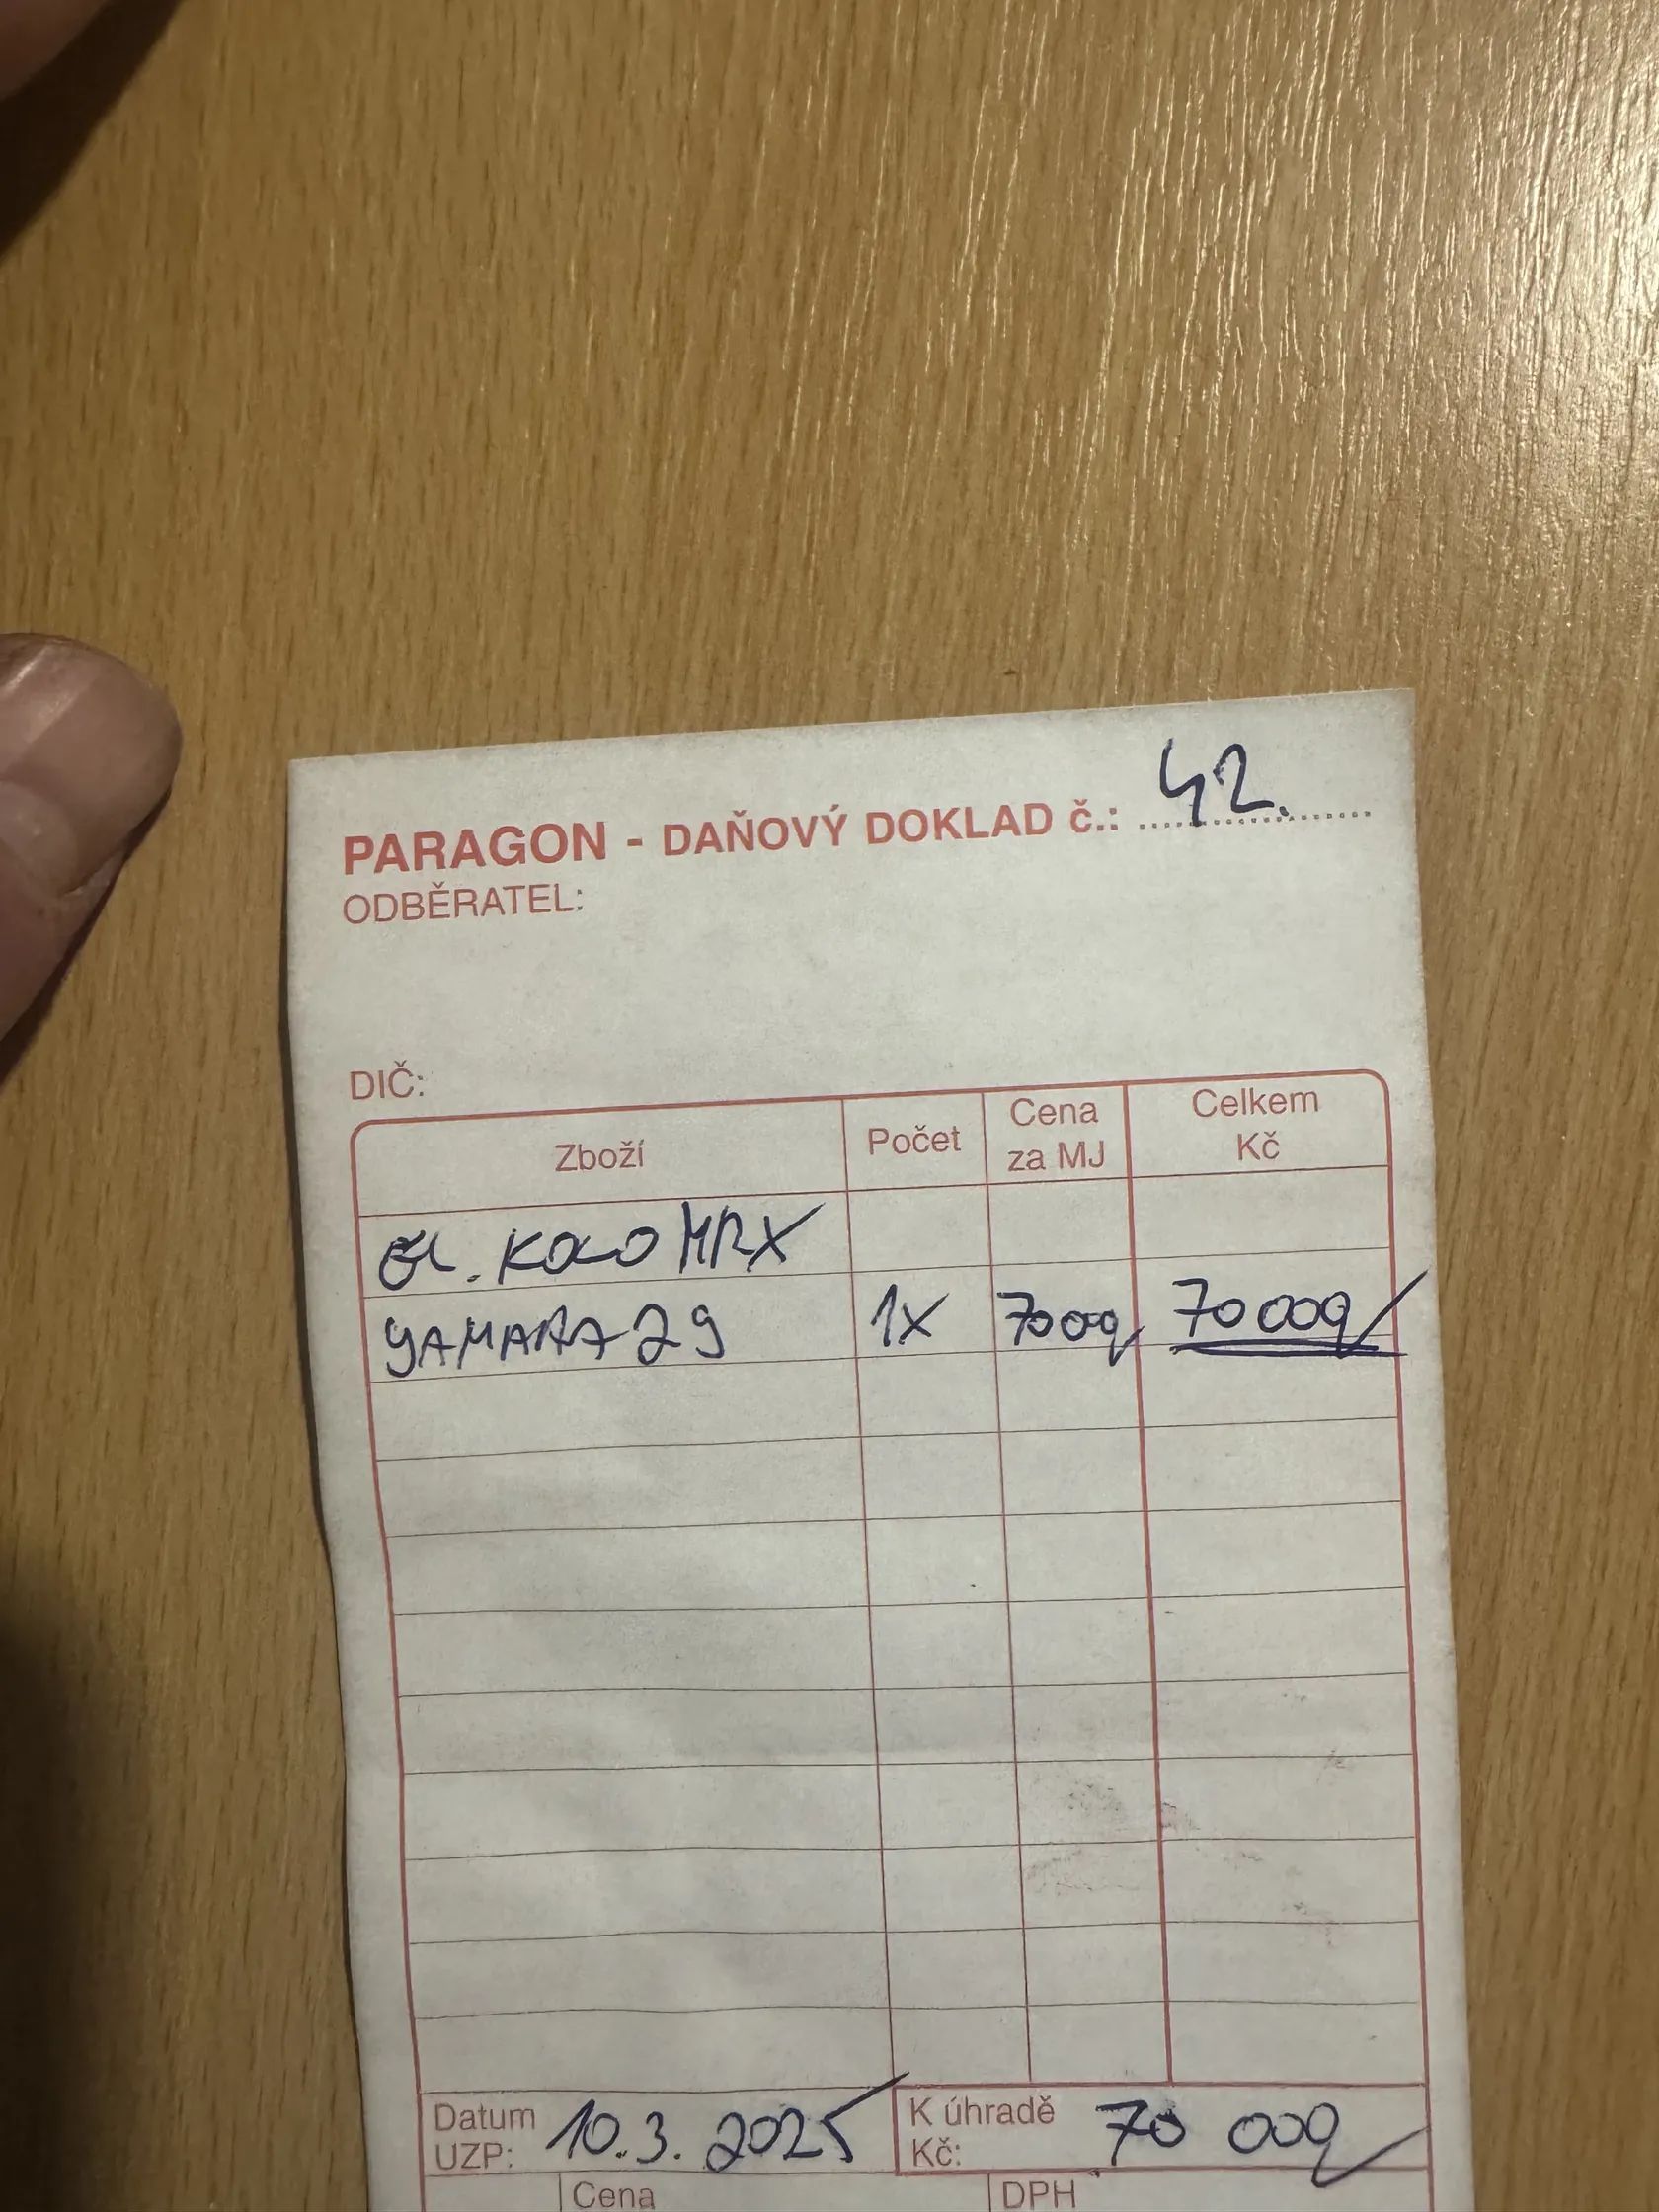 PARAGON - DAŇOVÝ DOKLAD č.: 42.
ODBĚRATEL:
DIČ:
Zboží Počet Cena za MJ Celkem Kč
EL. KOLO MRX
YAMAHA 29 1X 70 000 70 000
Datum UZP: 10.3. 2025 K úhradě Kč: 70 000
Cena DPH